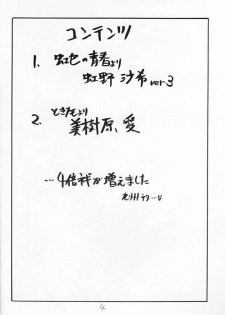 コンテンツ
1. 虹色の青春より
虹野 沙希 ver3
2. ときメモより
美樹原 愛
…4倍
が増えました